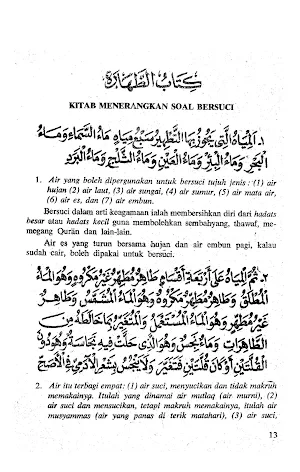 كتاب الطهارة
KITAB MENERANGKAN SOAL BERSUCI
١ـ المياه التي يجوز بها التطهير سبع مياه ماء السماء وماء
البحر وماء النهر وماء البئر وماء العين وماء الثلج وماء البرد
1. Air yang boleh dipergunakan untuk bersuci tujuh jenis : (1) air
hujan (2) air laut, (3) air sungai, (4) air sumur, (5) air mata air,
(6) air es, dan (7) air embun.
Bersuci dalam arti keagamaan ialah membersihkan diri dari hadats
besar atau hadats kecil guna membolehkan sembahyang, thawaf, me-
megang Qurān dan lain-lain.
Air es yang turun bersama hujan dan air embun pagi, kalau
sudah cair, boleh dipakai untuk bersuci.
٢ـ ثم المياه على أربعة أقسام طاهر مطهر غير مكروه وهو الماء
المطلق وطاهر مطهر مكروه وهو الماء المشمس وطاهر
غير مطهر وهو الماء المستعمل والمتغير بما خالطه من
الطاهرات وماء نجس وهو الذي حلت فيه نجاسة وهو دون
القلتين أو كان قلتين فتغير
2. Air itu terbagi empat: (1) air suci, menyucikan dan tidak makruh
memakainya. Itulah yang dinamai air mutlaq (air murni), (2)
air suci dan mensucikan, tetapi makruh memakainya, itulah air
musyammas (air yang panas di terik matahari), (3) air suci,
13